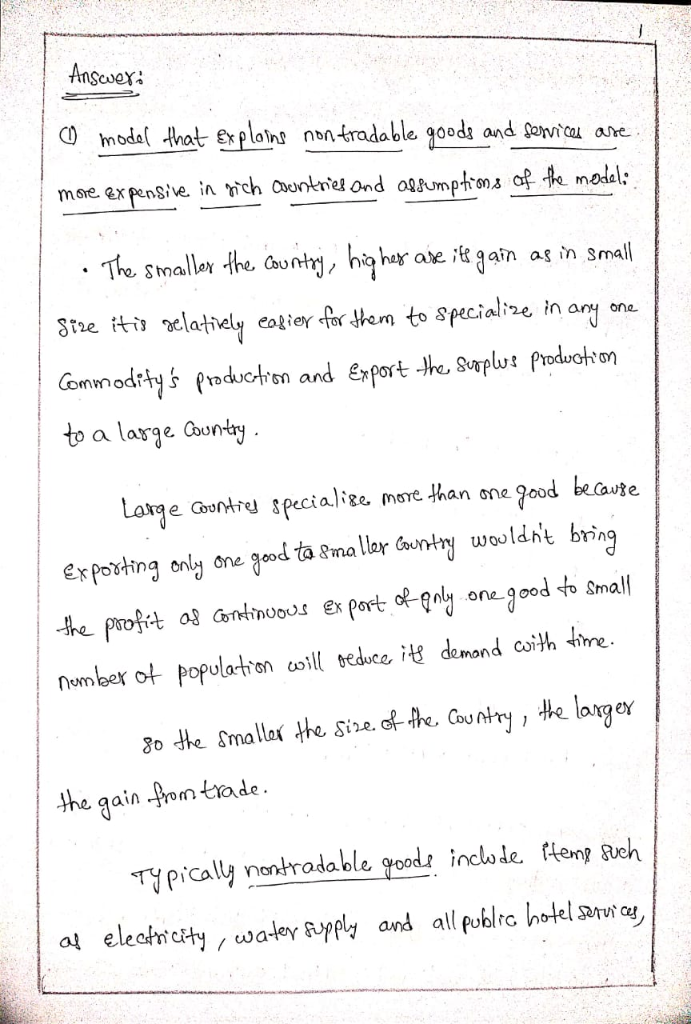 1
Answer:
(1) model that explains nontradable goods and services are
more expensive in rich countries and assumptions of the model:
• The smaller the country, higher are its gain as in small
size it is relatively easier for them to specialize in any one
Commodity's production and Export the surplus production
to a large Country.
Large countries specialise more than one good because
Exporting only one good to smaller Country wouldn't bring
the profit as continuous Export of only one good to small
number of population will reduce its demand with time.
so the smaller the size of the Country, the larger
the gain from trade.
Typically nontradable goods include items such
as electricity, water supply and all public hotel services,